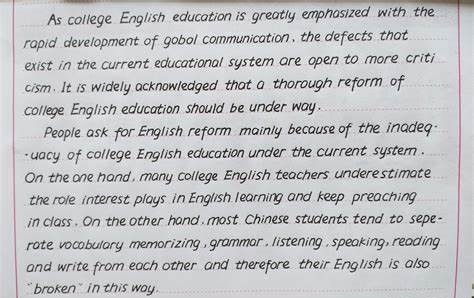 As college English education is greatly emphasized with the
rapid development of gobal communication, the defects that
exist in the current educational system are open to more criti
cism. It is widely acknowledged that a thorough reform of
college English education should be under way.
People ask for English reform mainly because of the inadeq-
-uacy of college English education under the current system.
On the one hand, many college English teachers underestimate
the role interest plays in English learning and keep preaching
in class. On the other hand, most Chinese students tend to sepe-
rate vocabulary memorizing, grammar, listening, speaking, reading
and write from each other and therefore their English is also
"broken" in this way.